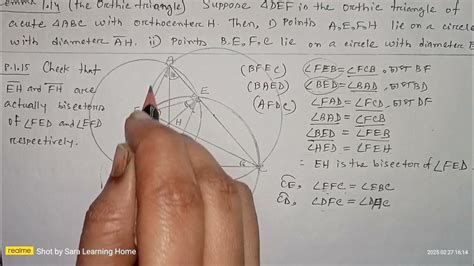 Lemma 1.14 (the Orthic triangle) Suppose △DEF is the Orthic triangle of
acute △ABC with orthocenter H. Then, i) Points A,E,F,H lie on a circle
with diameter AH. ii) Points B.E,F,C lie on a circle with diameter
P.1.15 Check that
EH and FH are
actually bisectors
of ∠FED and ∠EFD
respectively.
A
E
H
L
(BFEC)
(BAED)
(AFDC)
∠FEB = ∠FCB, চাপ BF
∠BED = ∠BAD, চাপ BD
∠FAD = ∠FCD, চাপ DF
∠BAD = ∠FCB
∠BED = ∠FEB
∠HED = ∠FEH
= EH is the bisector of ∠FED.
∠EFC = ∠EBC
∠DFC = ∠DAC
realme Shot by Sara Learning Home
2025.02.27 16:14